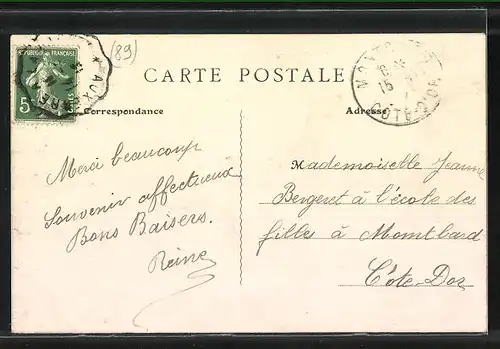 (89)
RÉPUBLIQUE FRANÇAISE
5
AUX
CARTE POSTALE
15
COTE-D'OR
Correspondance
Adresse
Merci beaucoup
Souvenir affectueux
Bons Baisers.
Reine
Mademoiselle Jeanne
Bergeret à l'école des
filles à Momtbard
Côte-Dor